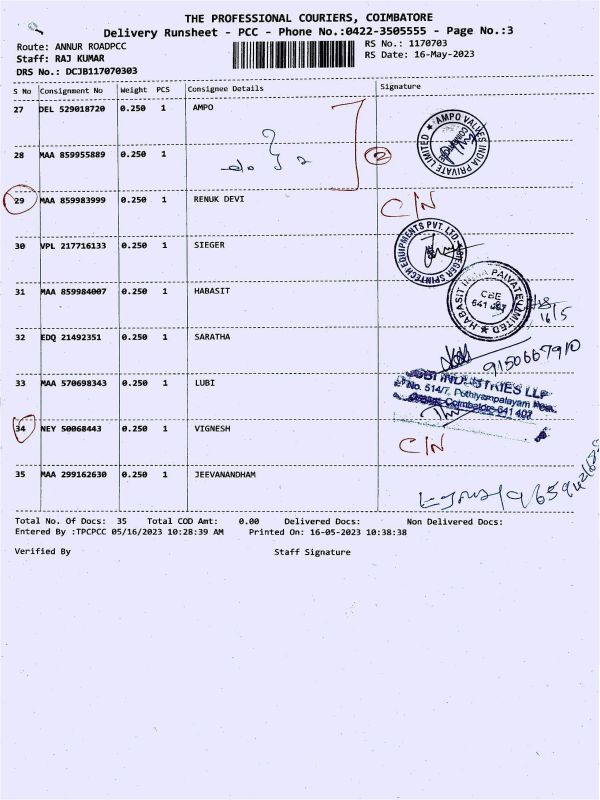 THE PROFESSIONAL COURIERS, COIMBATORE
Delivery Runsheet - PCC - Phone No.:0422-3505555 - Page No.:3
Route: ANNUR ROADPCC
RS No.: 1170703
Staff: RAJ KUMAR
RS Date: 16-May-2023
DRS No.: DCJB117070303
S No Consignment No Weight PCS Consignee Details Signature
27 DEL 529018720 0.250 1 AMPO
AMPO VALVES INDIA PRIVATE LIMITED
28 MAA 859955889 0.250 1
do } 2
2
29 MAA 859983999 0.250 1 RENUK DEVI C/N
30 VPL 217716133 0.250 1 SIEGER
31 MAA 859984007 0.250 1 HABASIT
HABASIT INDIA PAIVATE LIMITED
CBE
16/5
32 EDQ 21492351 0.250 1 SARATHA
9150667910
33 MAA 570698343 0.250 1 LUBI
INDUSTRIES LLP
No. 514/7, Puthiyampalayam
Coimbatore-641 407
34 NEY 50068443 0.250 1 VIGNESH C/N
35 MAA 299162630 0.250 1 JEEVANANDHAM
Total No. Of Docs: 35 Total COD Amt: 0.00 Delivered Docs: Non Delivered Docs:
Entered By :TPCPCC 05/16/2023 10:28:39 AM Printed On: 16-05-2023 10:38:38
Verified By Staff Signature